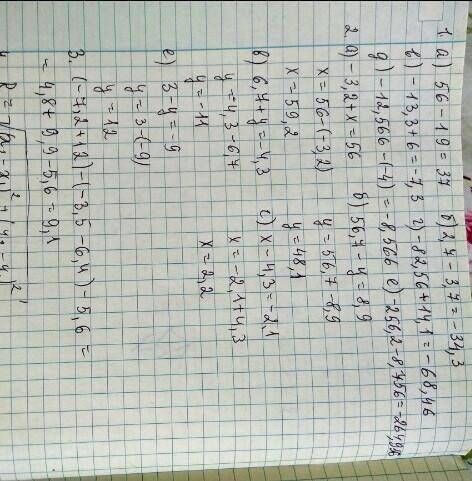 1. а) 56 - 19 = 37 б) 2,4 - 3,7 = -34,3
в) -13,3 + 6 = -7,3 г) -82,56 + 14,1 = -68,46
д) -12,566 - (-4) = -8,566 е) -256,2 - 8,7456 =
2. а) -3,2 + x = 56 б) 56,7 - y = 8,9
x = 56 - (-3,2) y = 56,7 - 8,9
x = 59,2 y = 48,1
в) 6,7 + y = -4,3 с) x - 4,3 = -2,1
y = -4,3 - 6,7 x = -2,1 + 4,3
y = -11 x = 2,2
е) 3 - y = -9
y = 3 - (-9)
y = 12
3. (-7,2 + 12) - (-3,5 - 6,4) - 5,6 =
= 4,8 + 9,9 - 5,6 = 9,1